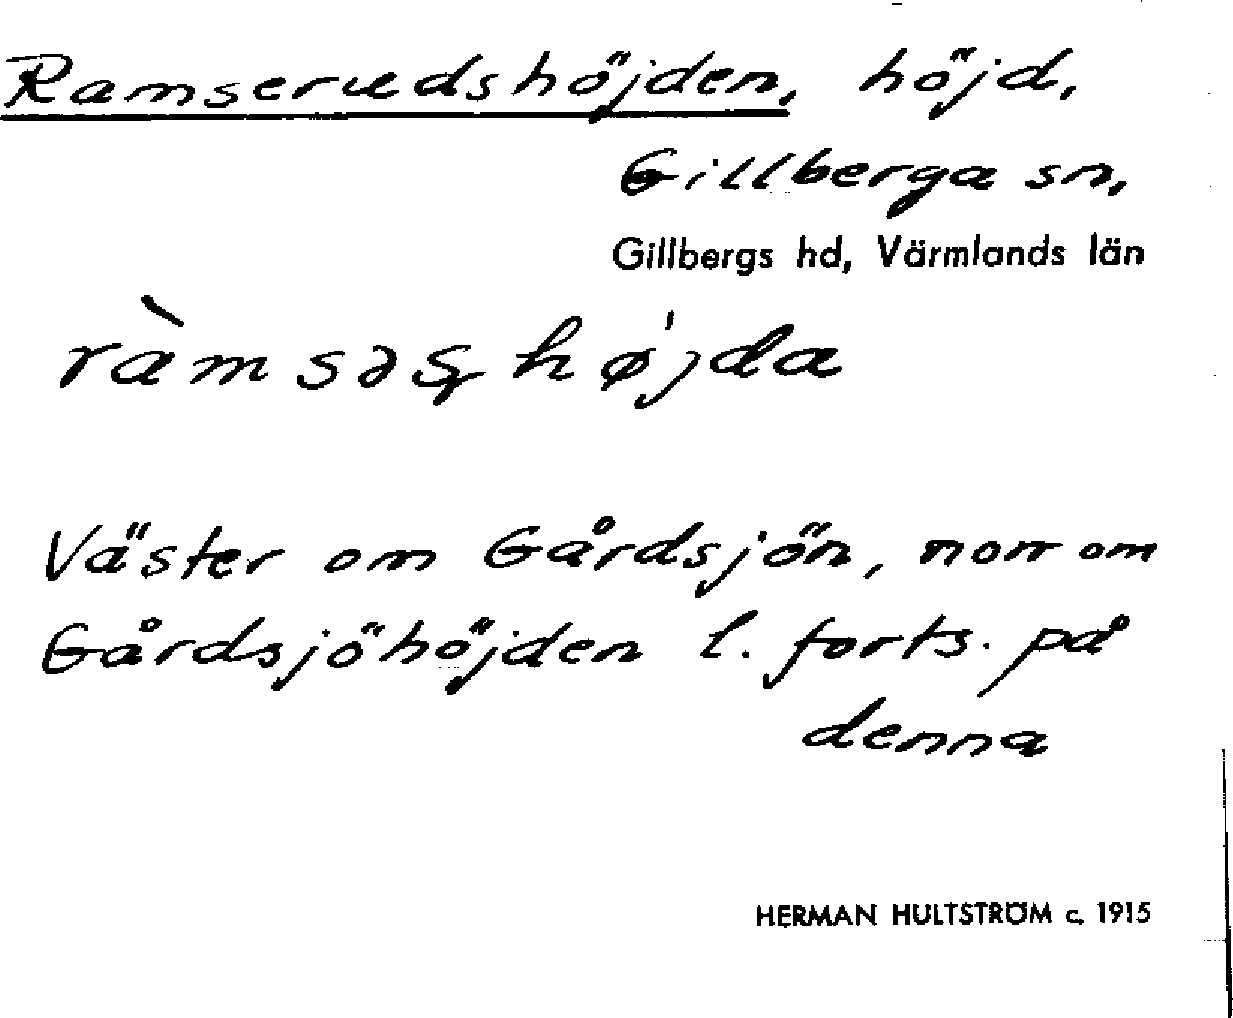 Ramserudshöjden, höjd,
Gillberga sn,
Gillbergs hd, Värmlands län
ràmsəʂhø'jda
Väster om Gårdsjön, norr om
Gårdsjöhöjden l. forts. på
denna
HERMAN HULTSTRÖM c. 1915